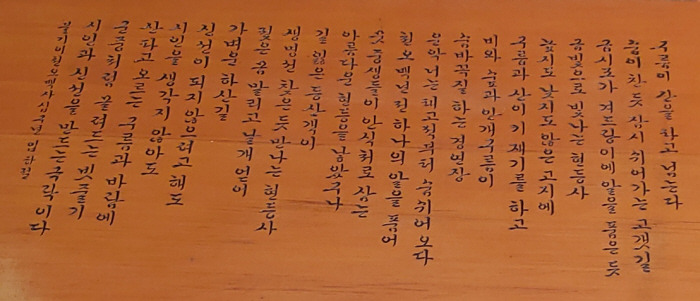 구름이 산을 타고 넘는다
숨이 찬 듯 잠시 쉬어가는 고갯길
금시조가 겨드랑이에 알을 품은 듯
금빛으로 빛나는 현등사
높지도 낮지도 않은 고지에
구름과 산이 기재기를 하고
비와 눈과 안개구름이
숨바꼭질하는 경연장
태고적부터 숨쉬어 오다
천오백년전 하나의 알을 품어
뭇 중생들이 안식처로 삼는
아름다운 현등을 낳았구나
길 잃은 등산객이
생명선 찾은 듯 만나는 현등사
젖은 몸 말리고 날개 얻어
가벼운 하산길
신선이 되지 않으려고 해도
시인을 생각지 않아도
산타고 오르는 구름과 바람에
군중처럼 몰려드는 빗줄기
시인과 신선을 만드는 극락이다
불기이천오백사십구년